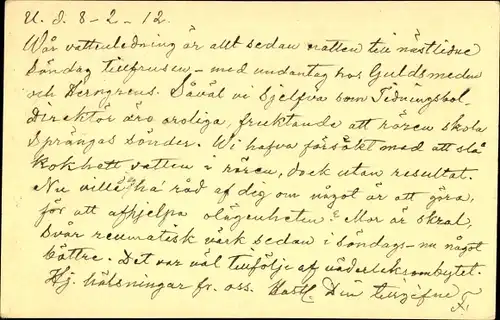 U. d. 8-2-12.
Vår vattenledning är allt sedan natten till nästlidne
Söndag tillfrusen - med undantag hos Guldsmeden
och Herngrens. Såväl vi sjelfva som Tidningsbol.
Direktör äro oroliga, fruktande att rören skola
sprängas sönder. Vi hafva försökt med att slå
kokhett vatten i rören, dock utan resultat.
Nu ville ha råd af dig om något är att göra,
för att afhjelpa olägenheten? Mor är skral,
svår reumatisk värk sedan i söndags - nu något
bättre. Det var väl tillfölje af väderleksombytet.
Hj. hälsningar fr. oss. Din tillgifne
F.